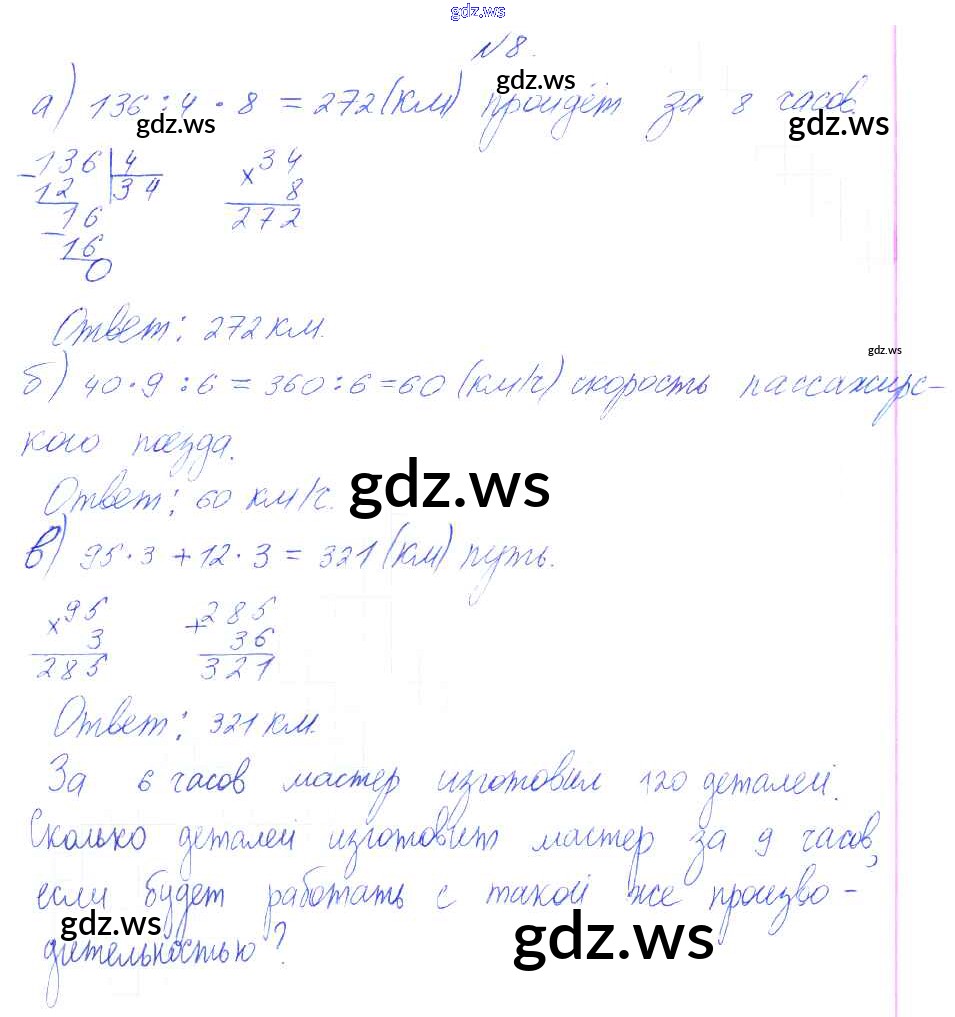 gdz.ws
N 8.
gdz.ws
а) 136 : 4 · 8 = 272 (км) пройдёт за 8 часов.
gdz.ws gdz.ws
- 136 | 4 × 34
12 34 8
- 16 272
16
0
Ответ: 272 км.
gdz.ws
б) 40 · 9 : 6 = 360 : 6 = 60 (км/ч) скорость пассажирс-
кого поезда.
Ответ: 60 км/ч.
gdz.ws
в) 95 · 3 + 12 · 3 = 321 (км) путь.
× 95 + 285
3 36
285 321
Ответ: 321 км.
За 6 часов мастер изготовил 120 деталей.
Сколько деталей изготовит мастер за 9 часов,
если будет работать с такой же произво-
gdz.ws gdz.ws
дительностью?